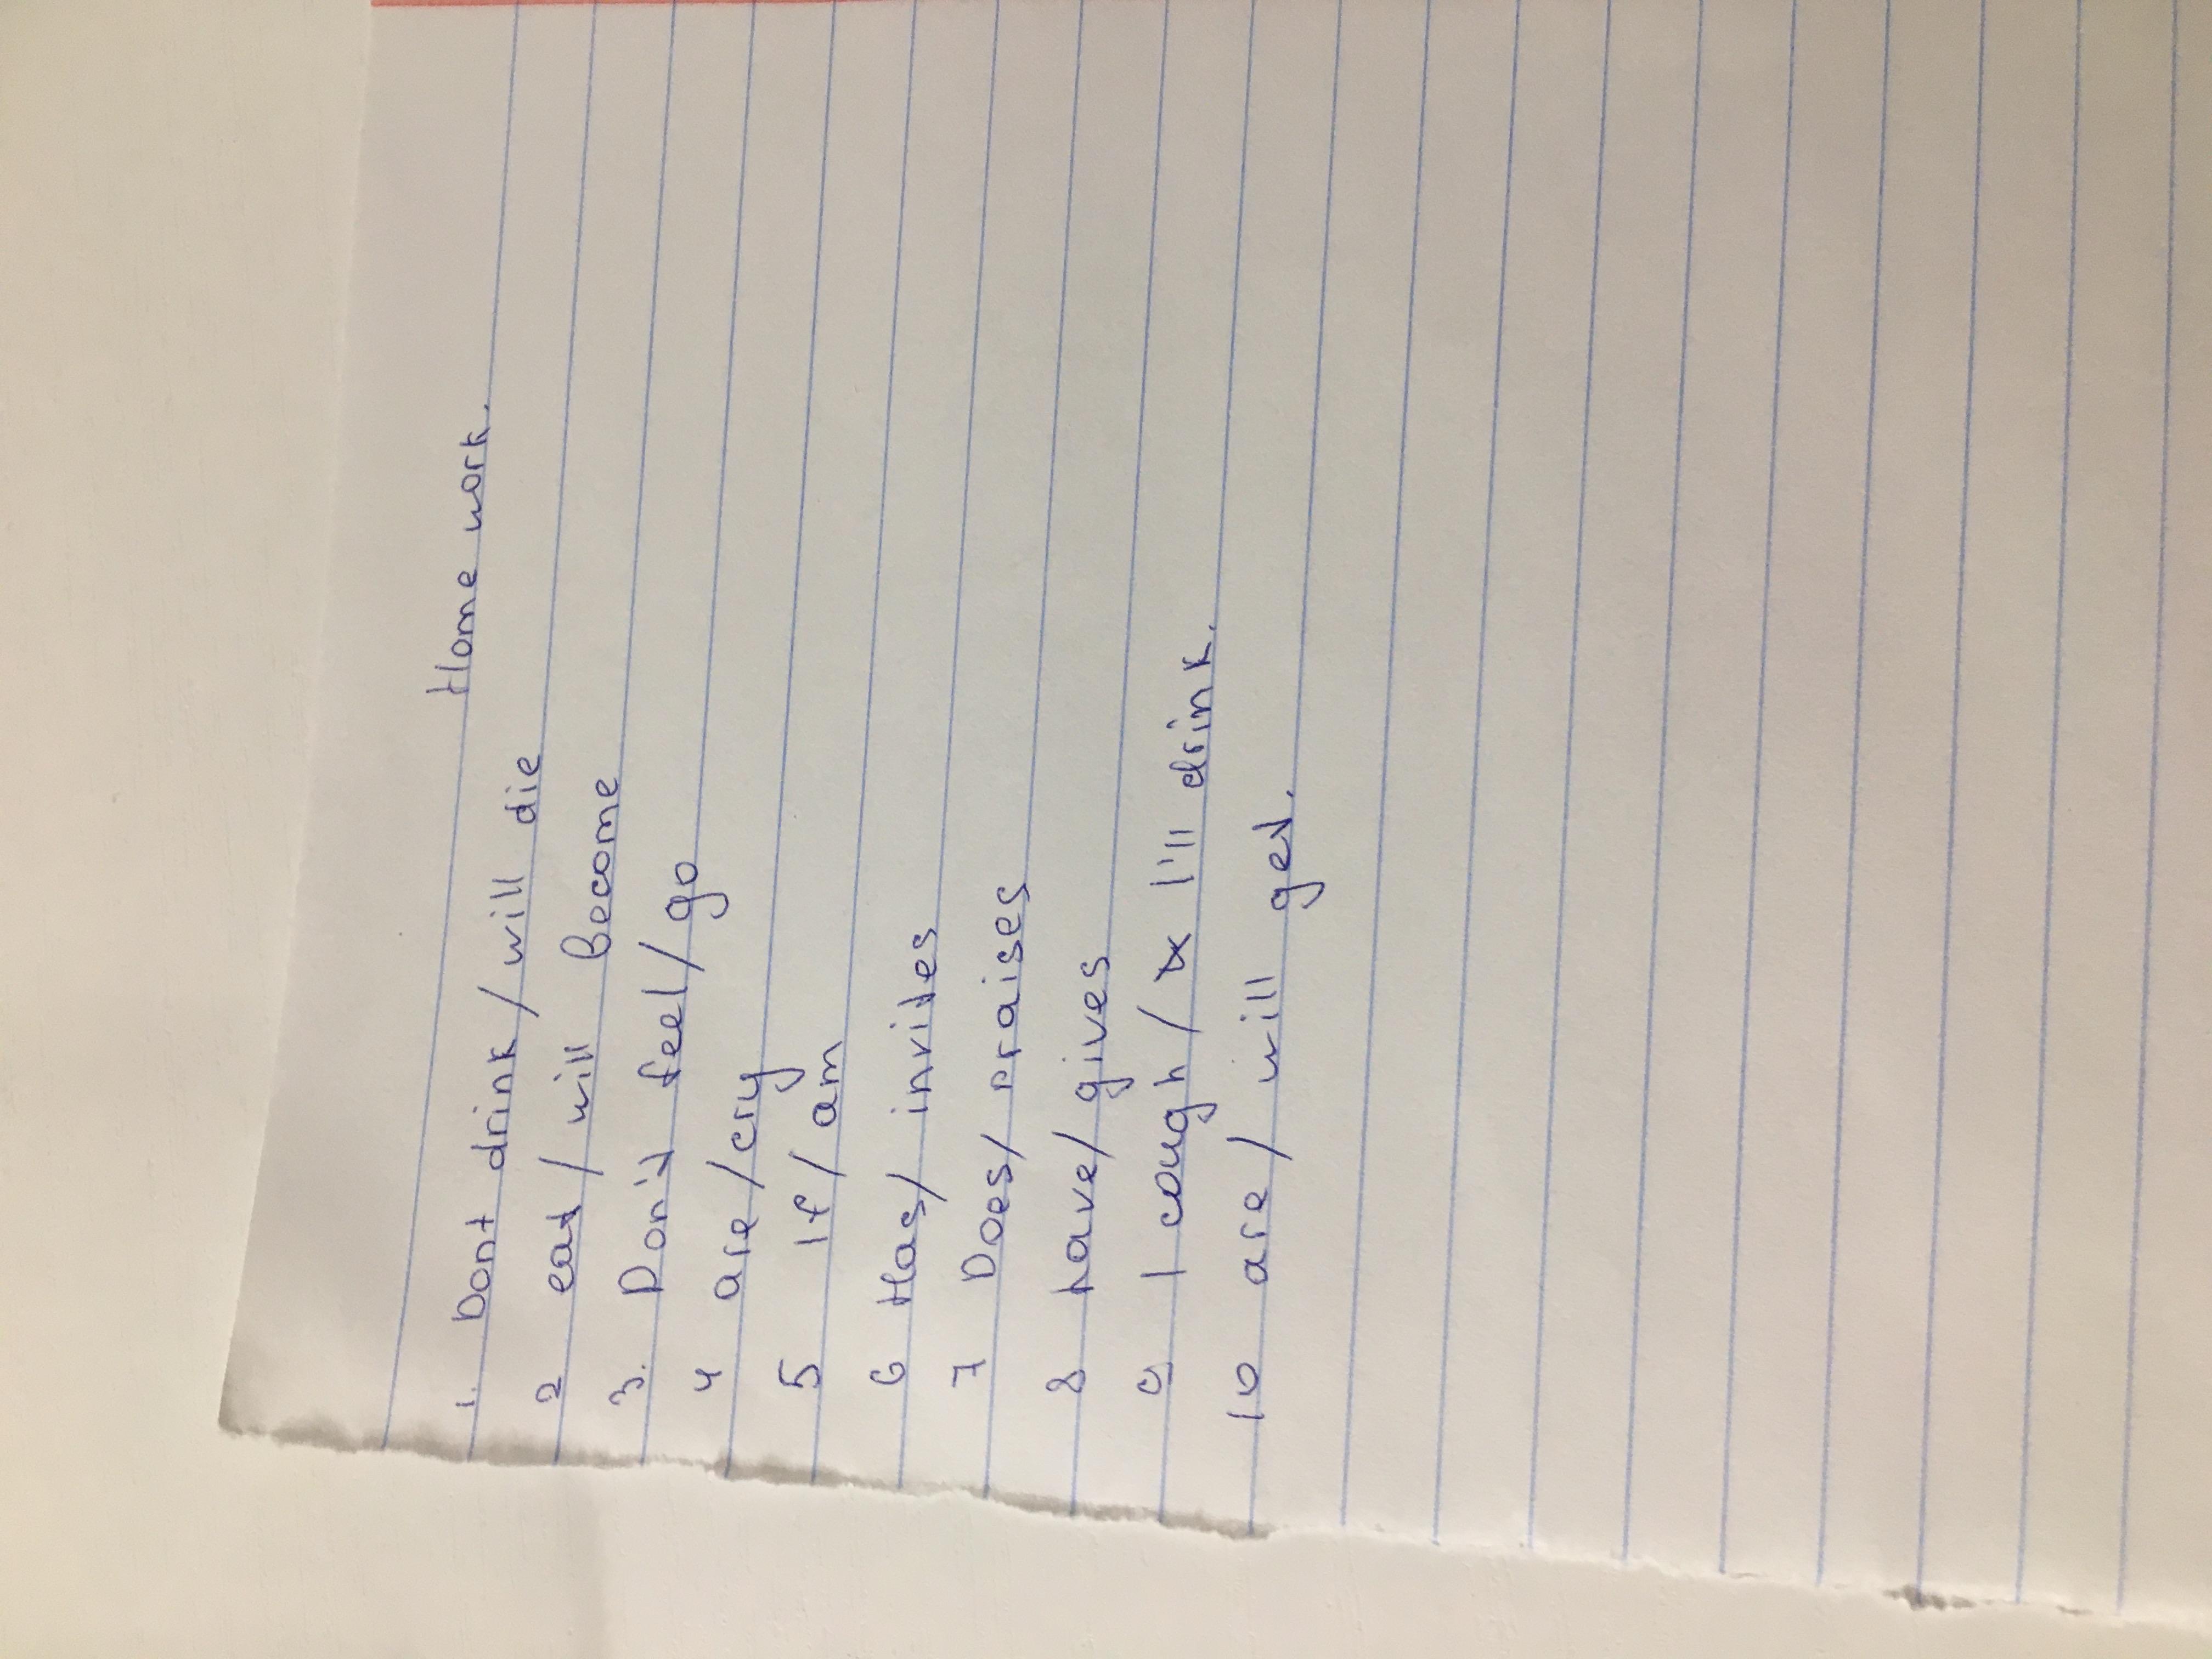 Home work.
1. Dont drink / will die
2 eat / will become
3. Don't feel / go
4 are / cry
5 If / am
6 Has / invites
7 Does / praises
8 have / gives
9 I cough / I'll drink.
10 are / will get.